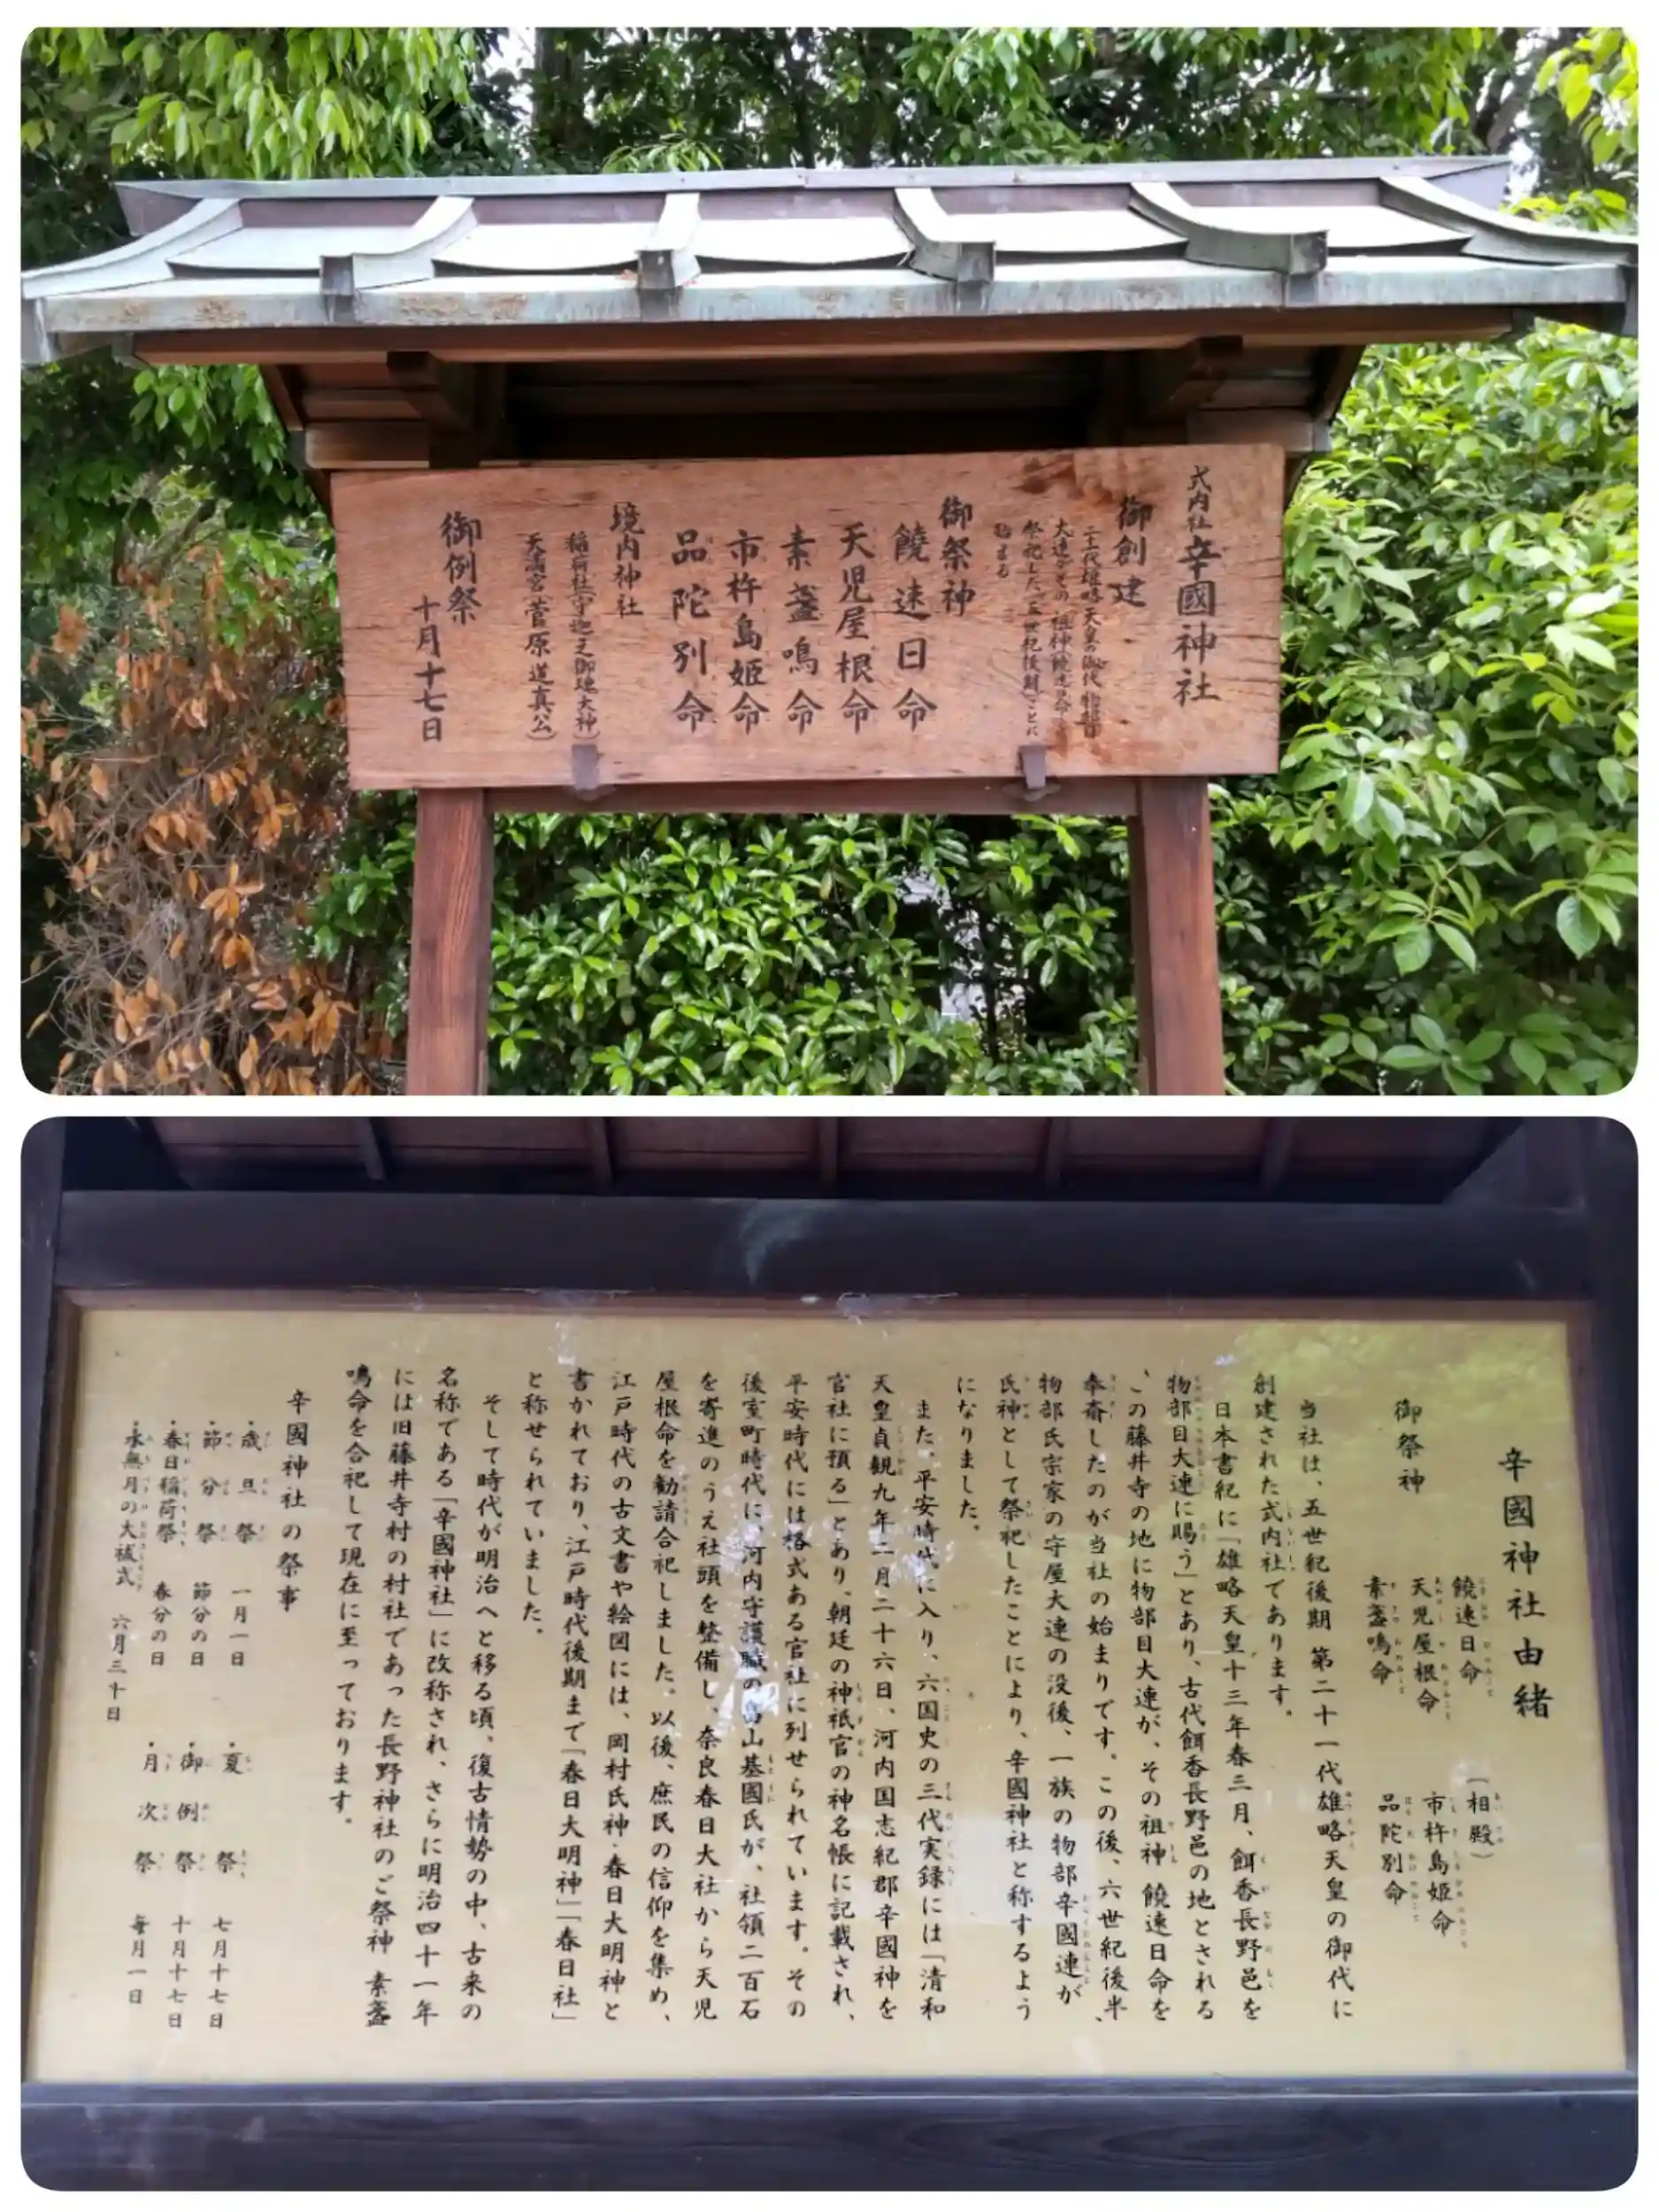 式内社 辛國神社
御創建
二十一代雄略天皇の御代 物部
大連がその祖神 饒速日命を
祭祀した、(五世紀後期)ことに
始まる
御祭神
饒速日命
天児屋根命
素盞鳴命
市杵島姫命
品陀別命
境内神社
稲荷社(宇迦之御魂大神)
天満宮(菅原道真公)
御例祭
十月十七日
辛國神社由緒
御祭神
饒速日命
天児屋根命
素盞鳴命
(相殿)
市杵島姫命
品陀別命
当社は、五世紀後期 第二十一代雄略天皇の御代に
創建された式内社であります。
日本書紀に「雄略天皇十三年春三月、餌香長野邑を
物部目大連に賜う」とあり、古代餌香長野邑の地とされる
、この藤井寺の地に物部目大連が、その祖神 饒速日命を
奉斎したのが当社の始まりです。この後、六世紀後半、
物部氏宗家の守屋大連の没後、一族の物部辛國連が
氏神として祭祀したことにより、辛國神社と称するよう
になりました。
また、平安時代に入り、六国史の三代実録には「清和
天皇貞観九年二月二十六日、河内国志紀郡辛國神を
官社に預る」とあり、朝廷の神祇官の神名帳に記載され、
平安時代には格式ある官社に列せられています。その
後室町時代に、河内守護職の畠山基國氏が、社領二百石
を寄進のうえ社頭を整備し、奈良春日大社から天児
屋根命を勧請合祀しました。以後、庶民の信仰を集め、
江戸時代の古文書や絵図には、岡村氏神・春日大明神と
書かれており、江戸時代後期まで「春日大明神」「春日社」
と称せられていました。
そして時代が明治へと移る頃、復古情勢の中、古来の
名称である「辛國神社」に改称され、さらに明治四十一年
には旧藤井寺村の村社であった長野神社のご祭神 素盞
鳴命を合祀して現在に至っております。
辛國神社の祭事
・歳旦祭 一月一日
・節分祭 節分の日
・春日稲荷祭 春分の日
・水無月の大祓式 六月三十日
・夏祭 七月十七日
・御例祭 十月十七日
・月次祭 毎月一日